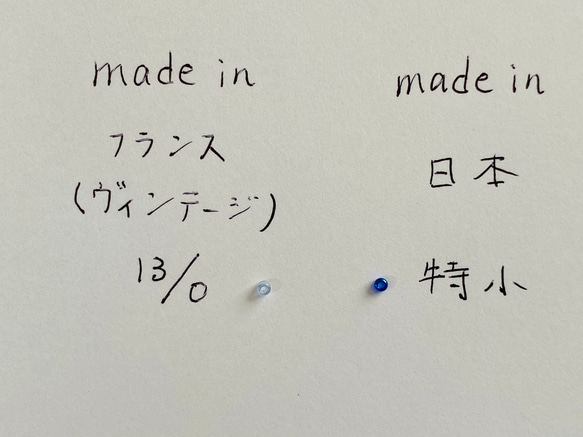 made in
フランス
(ヴィンテージ)
13/0
made in
日本
特小